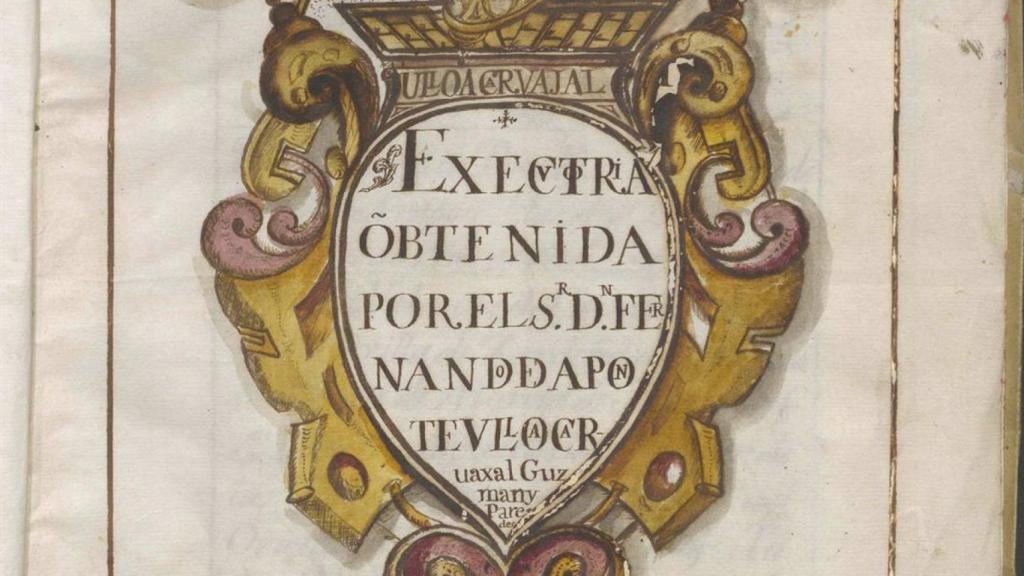 ULLOA CARVAJAL
EXECVTORIA
OBTENIDA
POR EL S.R D.N FER
NANDO DE APON
TE VLLOA CAR
uaxal Guz
man y
Pare
des